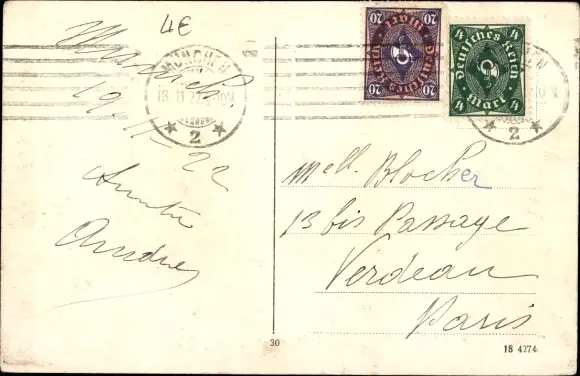 4E
Munich
19-11-22
André
MÜNCHEN
18 11 22
* 2 *
20
Deutsches Reich
20
4 4
Deutsches Reich
Mark
4 4
2
Mell. Blocher
13 bis Passage
Verdeau
Paris
30
18 4274